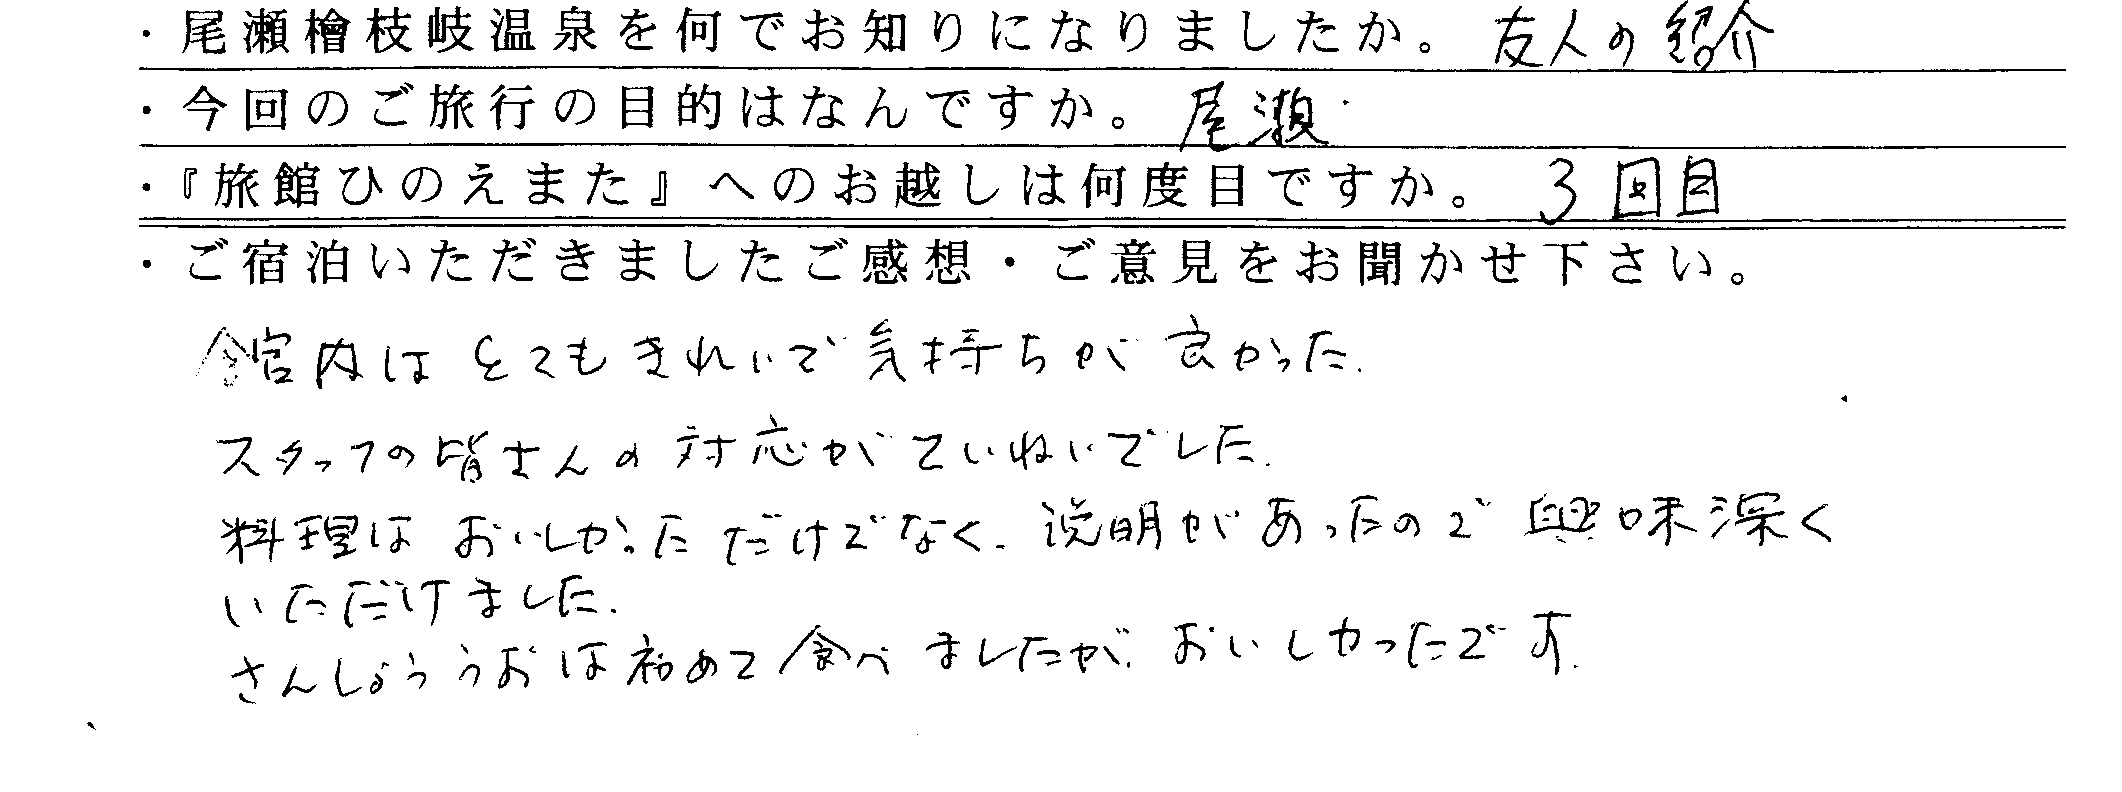 ・尾瀬檜枝岐温泉を何でお知りになりましたか。友人の紹介
・今回のご旅行の目的はなんですか。尾瀬
・『旅館ひのえまた』へのお越しは何度目ですか。3回目
・ご宿泊いただきましたご感想・ご意見をお聞かせ下さい。
館内はとてもきれいで気持ちが良かった.
スタッフの皆さんの対応がていねいでした.
料理はおいしかっただけでなく、説明があったので興味深く
いただけました.
さんしょううおは初めて食べましたが、おいしかったです.